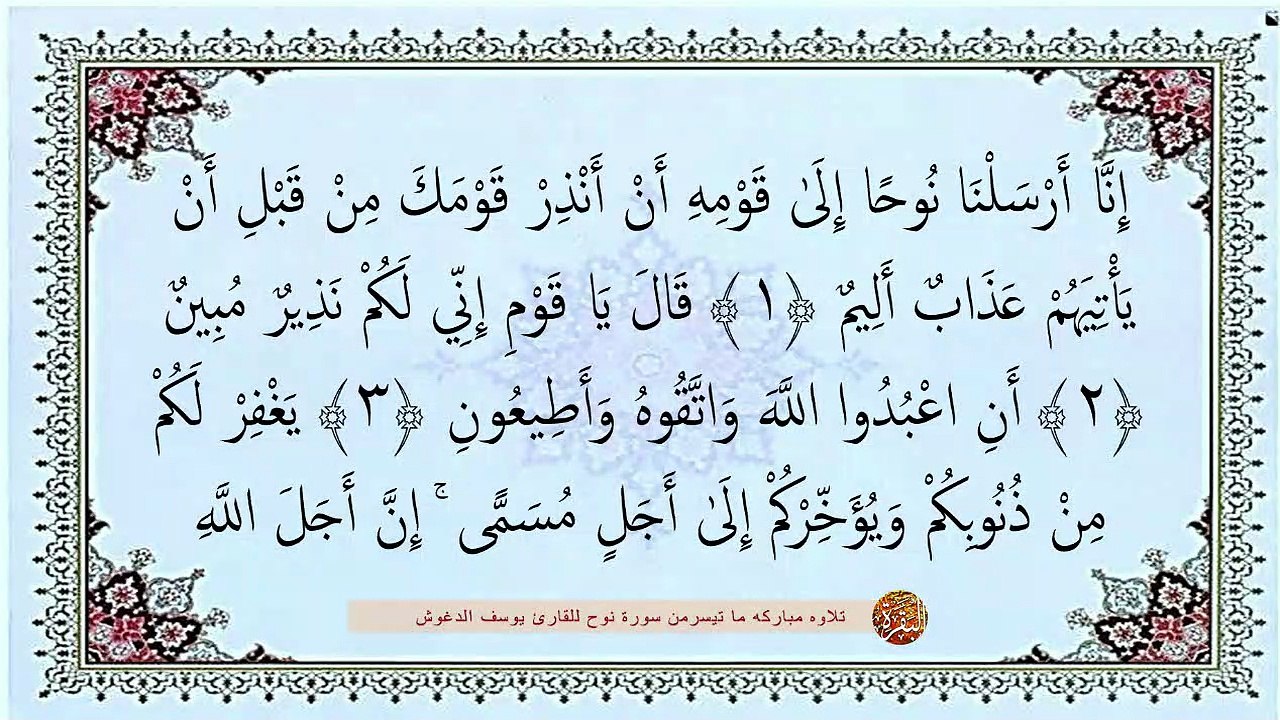 إِنَّا أَرْسَلْنَا نُوحًا إِلَىٰ قَوْمِهِ أَنْ أَنْذِرْ قَوْمَكَ مِنْ قَبْلِ أَنْ
يَأْتِيَهُمْ عَذَابٌ أَلِيمٌ ﴿١﴾ قَالَ يَا قَوْمِ إِنِّي لَكُمْ نَذِيرٌ مُبِينٌ
﴿٢﴾ أَنِ اعْبُدُوا اللَّهَ وَاتَّقُوهُ وَأَطِيعُونِ ﴿٣﴾ يَغْفِرْ لَكُمْ
مِنْ ذُنُوبِكُمْ وَيُؤَخِّرْكُمْ إِلَىٰ أَجَلٍ مُسَمًّى ۚ إِنَّ أَجَلَ اللَّهِ
البقرة تلاوه مباركه ما تيسرمن سورة نوح للقارئ يوسف الدغوش